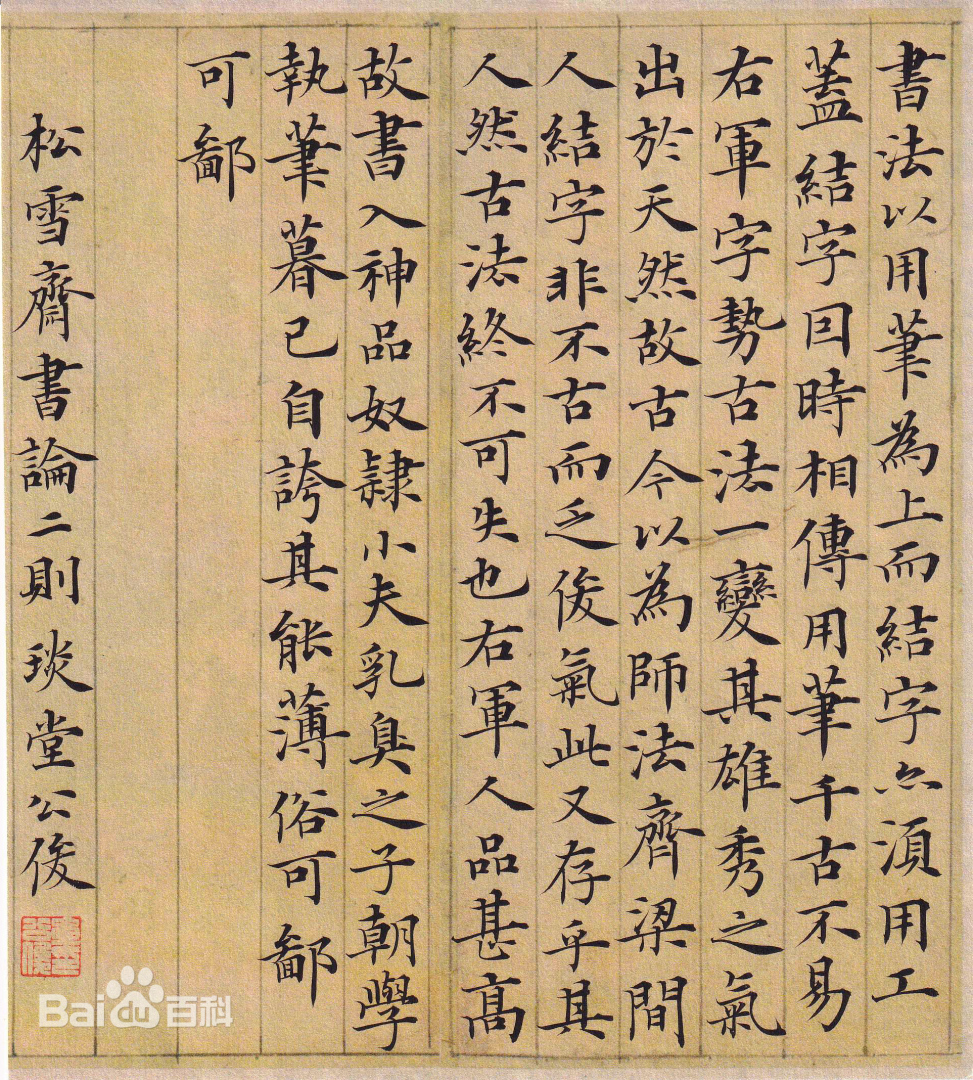 書法以用筆為上而結字亦須用工
蓋結字因時相傳用筆千古不易
右軍字勢古法一變其雄秀之氣
出於天然故古今以為師法齊梁間
人結字非不古而乏俊氣此又存乎其
人然古法終不可失也右軍人品甚高
故書入神品奴隸小夫乳臭之子朝學
執筆暮已自誇其能薄俗可鄙
可鄙
松雪齋書論二則 琰堂公俊
Bai百科